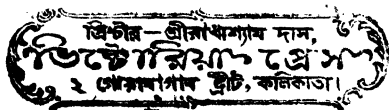 প্রিণ্টার—শ্রীরাধাশ্যাম দাস,
ভিক্টোরিয়া প্রেস
২ গোয়াবাগান ষ্ট্রীট, কলিকাতা।